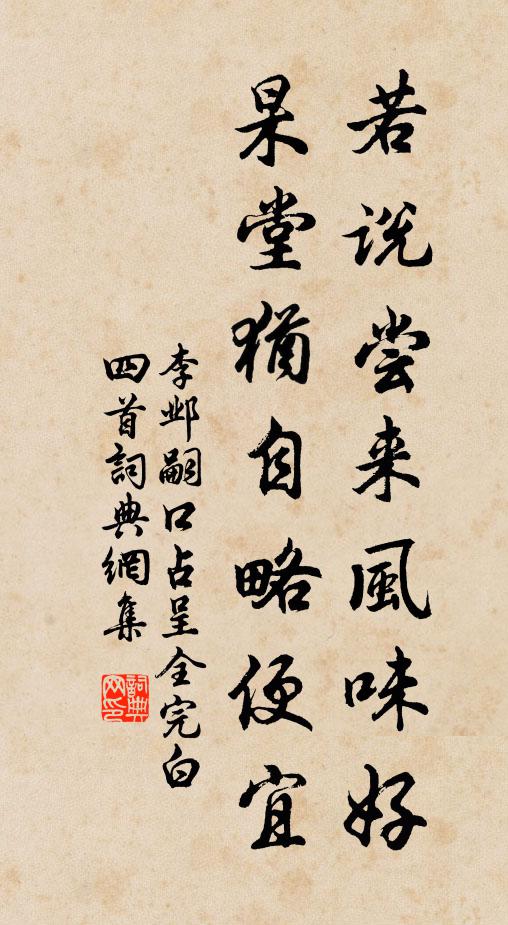 若说尝来風味好
杲堂猶自略便宜
李邺嗣口占呈全完白
四首詞典網集
詞典网印